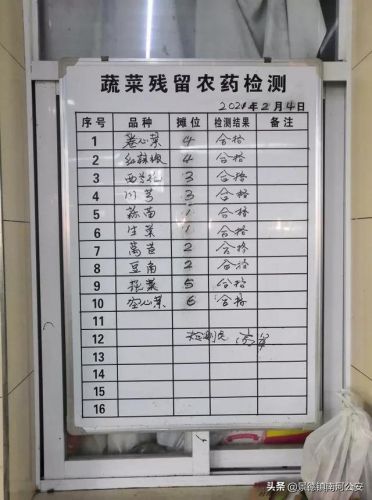 蔬菜残留农药检测
2021年2月4日
序号 品种 摊位 检测结果 备注
1 卷心菜 4 合格
2 红辣椒 4 合格
3 西兰花 3 合格
4 川芎 3 合格
5 蒜苗 1 合格
6 生菜 1 合格
7 莴苣 2 合格
8 豆角 2 合格
9 菜 5 合格
10 空心菜 6 合格
11
12 检测员
13
14
15
16
头条 @景德镇南河公安